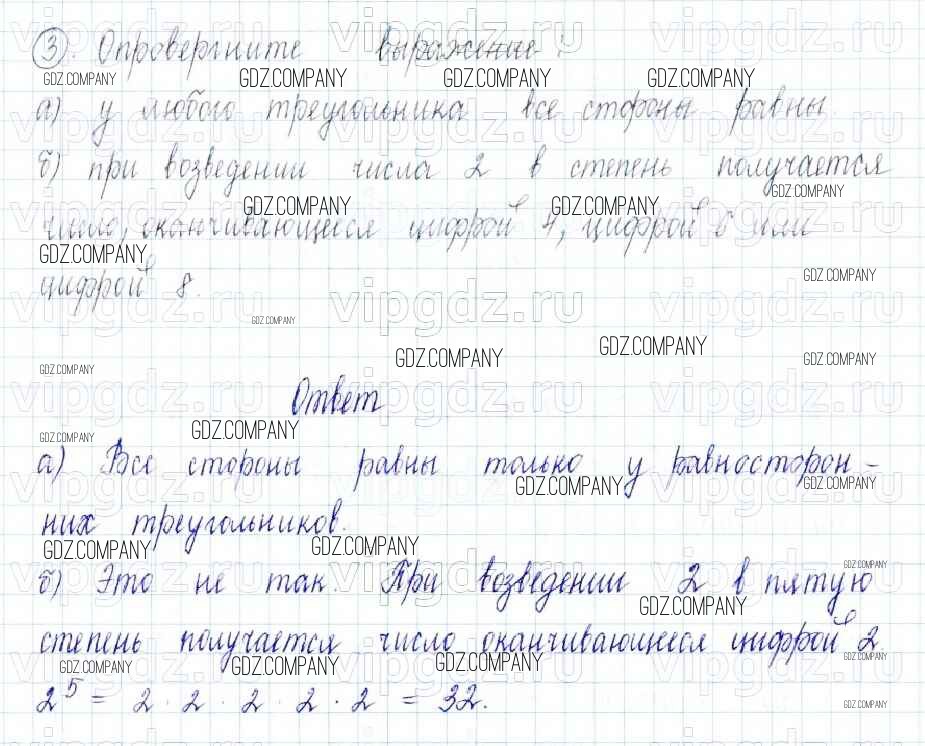 ③. Опровергните выражение:
а) у любого треугольника все стороны равны.
б) при возведении числа 2 в степень получается
число, оканчивающееся цифрой 4, цифрой 6 или
цифрой 8.
Ответ
а) Все стороны равны только у равносторон-
них треугольников.
б) Это не так. При возведении 2 в пятую
степень получается число оканчивающееся цифрой 2
2⁵ = 2 · 2 · 2 · 2 · 2 = 32.